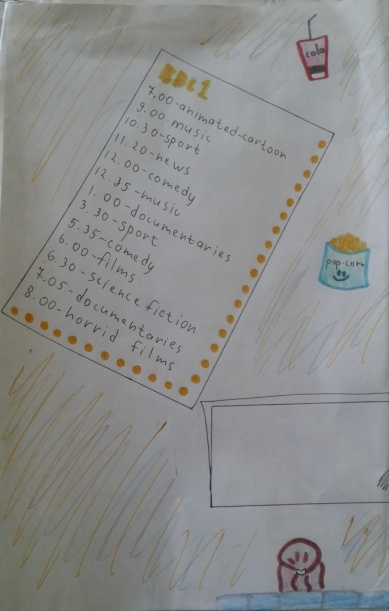 BBC1
7.00-animated-cartoon
9.00-music
10.30-sport
11.20-news
12.00-comedy
12.35-music
1.00-documentaries
3.30-sport
5.35-comedy
6.00-films
6.30-science fiction
7.05-documentaries
8.00-horrid films
cola
pop-corn